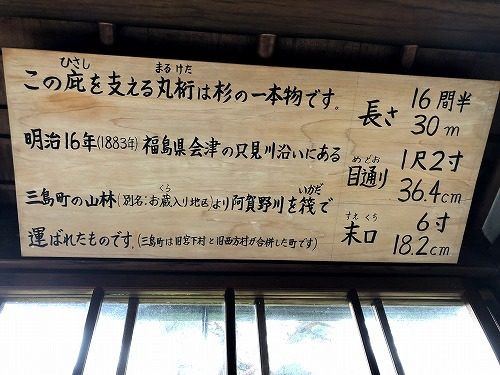 ひさし まるけた
この庇を支える丸桁は杉の一本物です。
明治16年(1883年)福島県会津の只見川沿いにある
くら いかだ
三島町の山林(別名:お蔵入り地区)より阿賀野川を筏で
運ばれたものです。(三島町は旧宮下村と旧西方村が合併した町です)
長さ 16間半
30m
めどお
目通り 1尺2寸
36.4cm
すえくち
末口 6寸
18.2cm